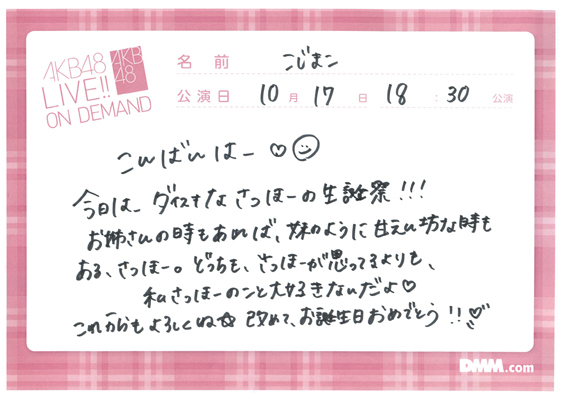 AKB48
LIVE!!
ON DEMAND
AKB
48
名前 こじまこ
公演日 10月17日 18:30公演
こんばんはー♡☺
今日は、ダイスキなさっほーの生誕祭!!!
お姉さんの時もあれば、妹のように甘えん坊な時も
ある、さっほー。どっちも、さっほーが思ってるよりも、
私さっほーのこと大好きなんだよ♡
これからもよろしくね☆ 改めて、お誕生日おめでとう!!♡
DMM.com